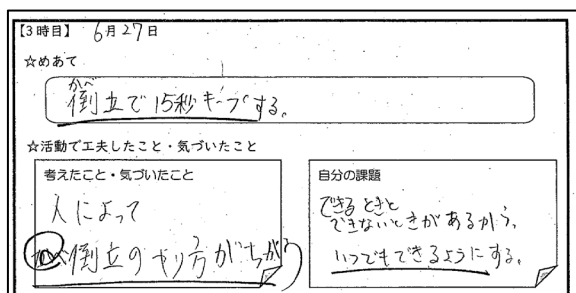 【3時目】 6月27日
☆めあて
かべ倒立で15秒キープする。
☆活動で工夫したこと・気づいたこと
考えたこと・気づいたこと
人によって
かべ倒立のやり方がちがう
自分の課題
できるときと
できないときがあるから、
いつでもできるようにする。